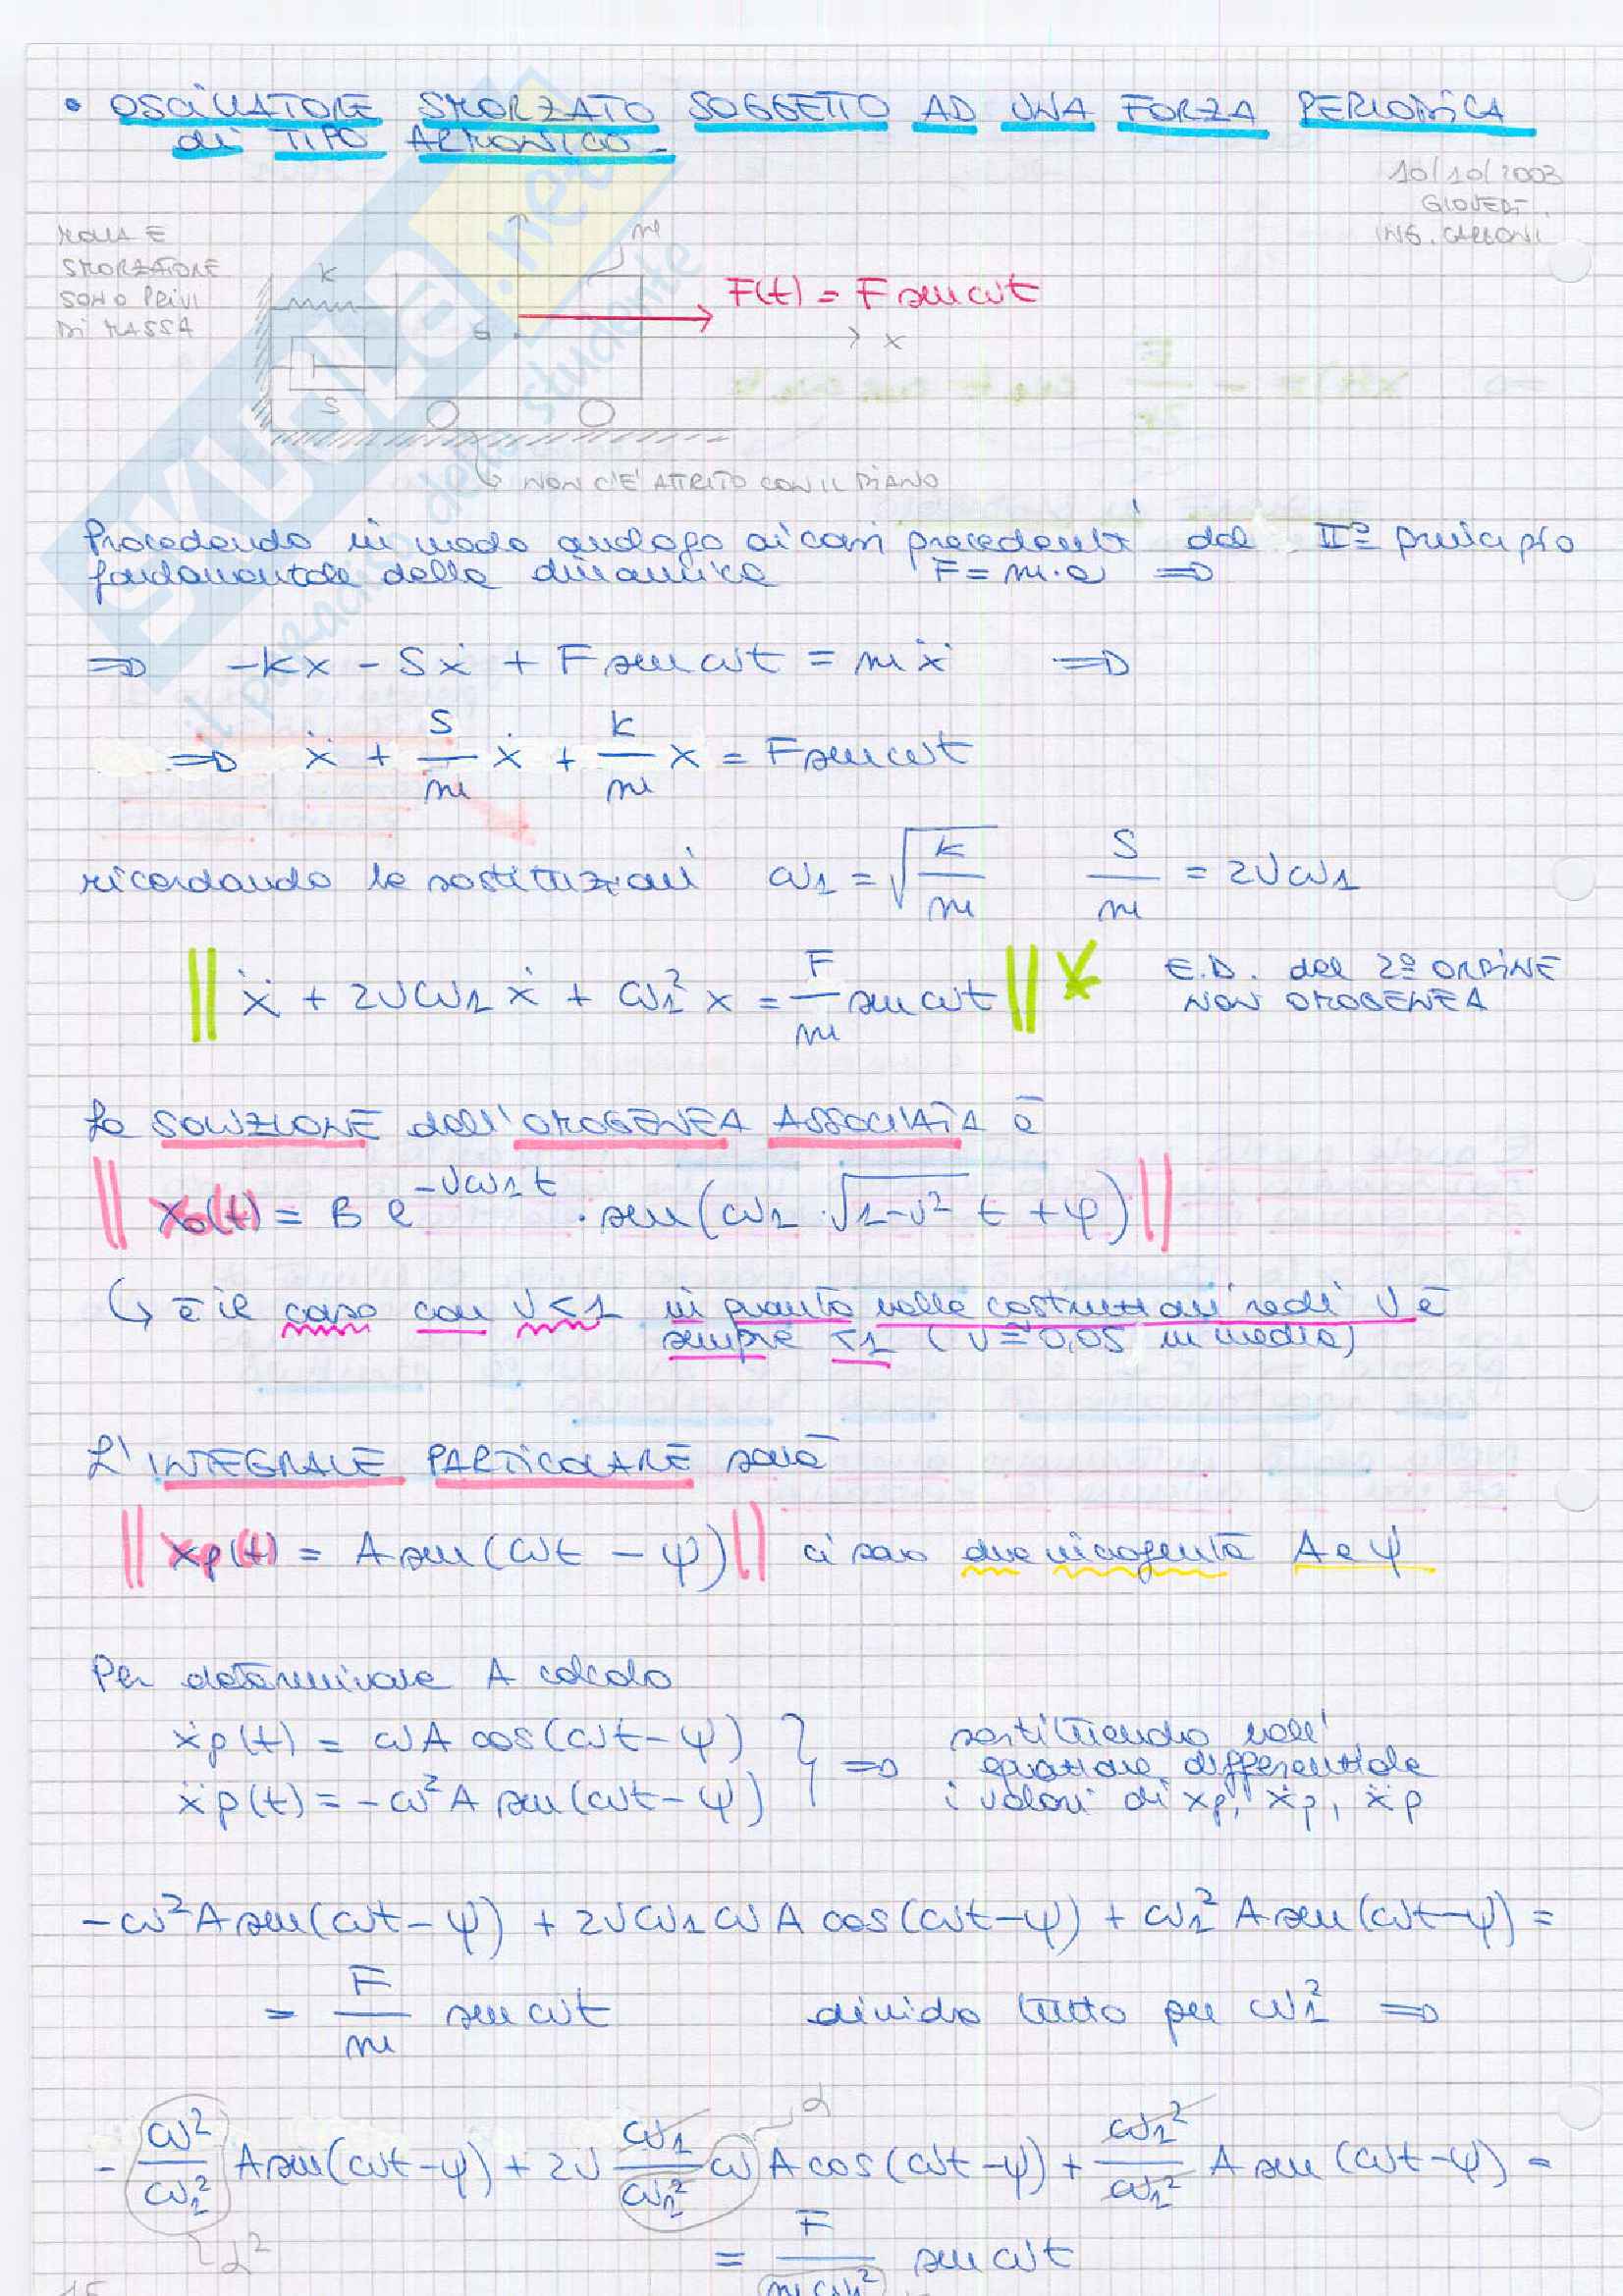 • OSCILLATORE SMORZATO SOGGETTO AD UNA FORZA PERIODICA
di TIPO ARMONICO
10/10/2003
GIOVEDI
ING. CARLONI
MOLLA E
SMORZATORE
SONO PRIVI
DI MASSA
K
m
G
S
x
F(t) = F sen ωt
NON C'È ATTRITO CON IL PIANO
SKUOLA.net
il paradiso dello studente
Procedendo in modo analogo ai casi precedenti dal II° principio
fondamentale della dinamica F = m·a ⇒
⇒ -kx - Sẋ + F sen ωt = mẍ ⇒
⇒ ẍ + S/m ẋ + k/m x = F sen ωt
ricordando le sostituzioni ω₁ = √(k/m) S/m = 2νω₁
|| ẍ + 2νω₁ẋ + ω₁² x = F/m sen ωt || * E.D. del 2° ORDINE
NON OMOGENEA
La SOLUZIONE dell'OMOGENEA ASSOCIATA è
|| x₀(t) = B e^(-νω₁t) · sen(ω₁ · √(1-ν²) t + φ) ||
↳ è il caso con ν<1 in quanto nelle costruzioni reali ν è
sempre <1 (ν ≅ 0,05 in media)
L'INTEGRALE PARTICOLARE sarà
|| xp(t) = A sen(ωt - ψ) || ci sono due incognite A e ψ
Per determinare A calcolo
ẋp(t) = ωA cos(ωt-ψ)
ẍp(t) = -ω²A sen(ωt-ψ)
} ⇒ sostituendo nell'
equazione differenziale
i valori di xp, ẋp, ẍp
-ω²A sen(ωt-ψ) + 2νω₁ωA cos(ωt-ψ) + ω₁²A sen(ωt-ψ) =
= F/m sen ωt divido tutto per ω₁² ⇒
α
- ω²/ω₁² A sen(ωt-ψ) + 2ν ω₁/ω₁² ω A cos(ωt-ψ) + ω₁²/ω₁² A sen(ωt-ψ) =
α²
= F/mω₁² sen ωt
15